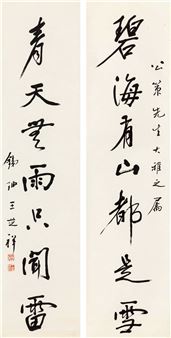 碧海有山都是雪
公策先生大雅之属
青天无雨只闻雷
王芝祥